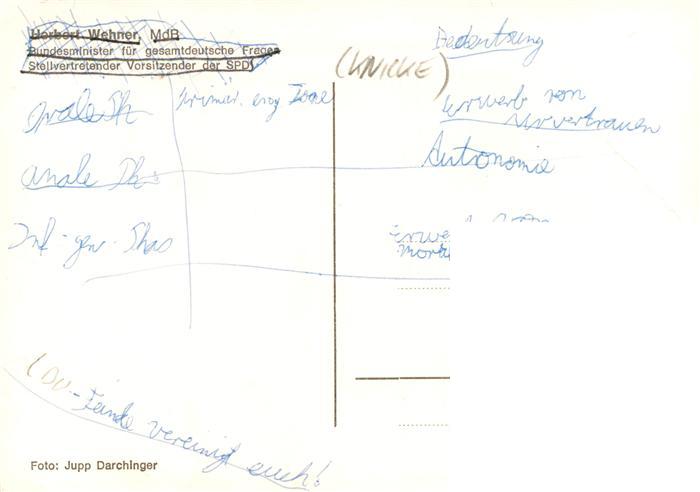 Herbert Wehner, MdB
Bundesminister für gesamtdeutsche Fragen
Stellvertretender Vorsitzender der SPD
Bedeutung
(KNICKE)
orale Ph
primär. erog Zone
Erwerb von
Urvertrauen
anale Ph.
Autonomie
Inf-gen. Phas
Erwe
Mora
(DU-Feinde vereinigt euch!
Foto: Jupp Darchinger